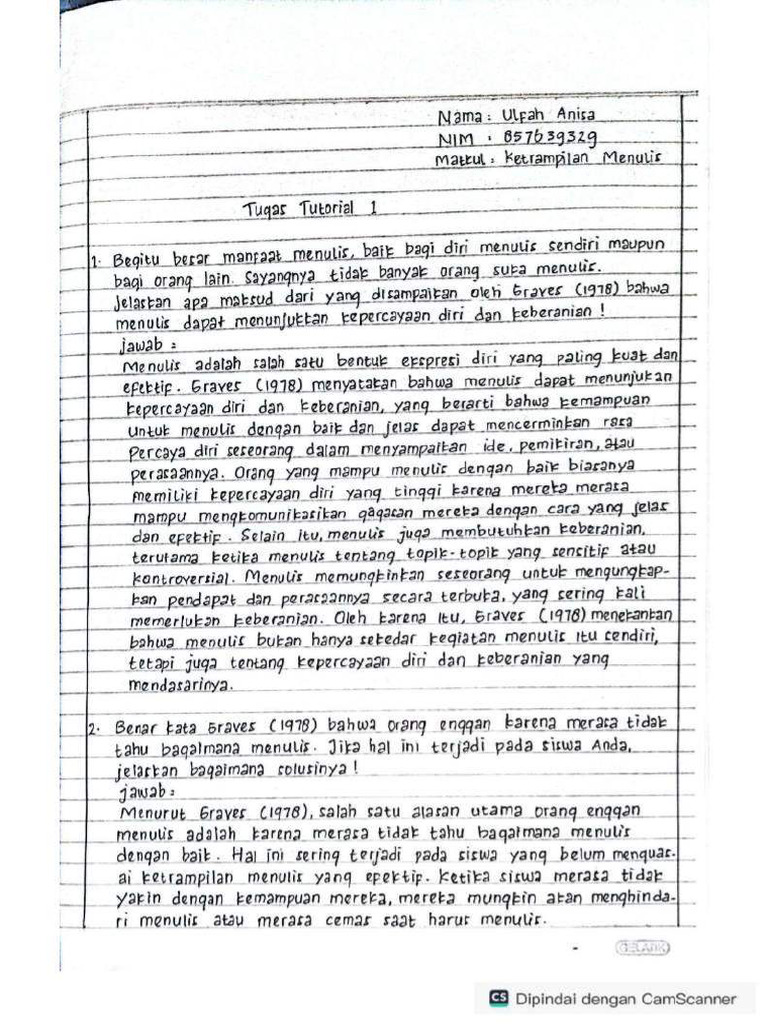 Nama : Ulfah Anisa
NIM : 857639329
Matkul : Ketrampilan Menulis
Tugas Tutorial 1
1. Begitu besar manfaat menulis, baik bagi diri menulis sendiri maupun
bagi orang lain. Sayangnya tidak banyak orang suka menulis.
Jelaskan apa maksud dari yang disampaikan oleh Graves (1978) bahwa
menulis dapat menunjukkan kepercayaan diri dan keberanian !
jawab :
Menulis adalah salah satu bentuk ekspresi diri yang paling kuat dan
efektif. Graves (1978) menyatakan bahwa menulis dapat menunjukan
kepercayaan diri dan keberanian, yang berarti bahwa kemampuan
untuk menulis dengan baik dan jelas dapat mencerminkan rasa
percaya diri seseorang dalam menyampaikan ide, pemikiran, atau
perasaannya. Orang yang mampu menulis dengan baik biasanya
memiliki kepercayaan diri yang tinggi karena mereka merasa
mampu mengkomunikasikan gagasan mereka dengan cara yang jelas
dan efektif. Selain itu, menulis juga membutuhkan keberanian,
terutama ketika menulis tentang topik-topik yang sensitif atau
kontroversial. Menulis memungkinkan seseorang untuk mengungkap-
kan pendapat dan perasaannya secara terbuka, yang sering kali
memerlukan keberanian. Oleh karena itu, Graves (1978) menekankan
bahwa menulis bukan hanya sekedar kegiatan menulis itu sendiri,
tetapi juga tentang kepercayaan diri dan keberanian yang
mendasarinya.
2. Benar kata Graves (1978) bahwa orang enggan karena merasa tidak
tahu bagaimana menulis. Jika hal ini terjadi pada siswa Anda,
jelaskan bagaimana solusinya !
jawab :
Menurut Graves (1978), salah satu alasan utama orang enggan
menulis adalah karena merasa tidak tahu bagaimana menulis
dengan baik. Hal ini sering terjadi pada siswa yang belum menguas-
ai ketrampilan menulis yang efektif. Ketika siswa merasa tidak
yakin dengan kemampuan mereka, mereka mungkin akan menghinda-
ri menulis atau merasa cemas saat harus menulis.
GELATIK
CS Dipindai dengan CamScanner